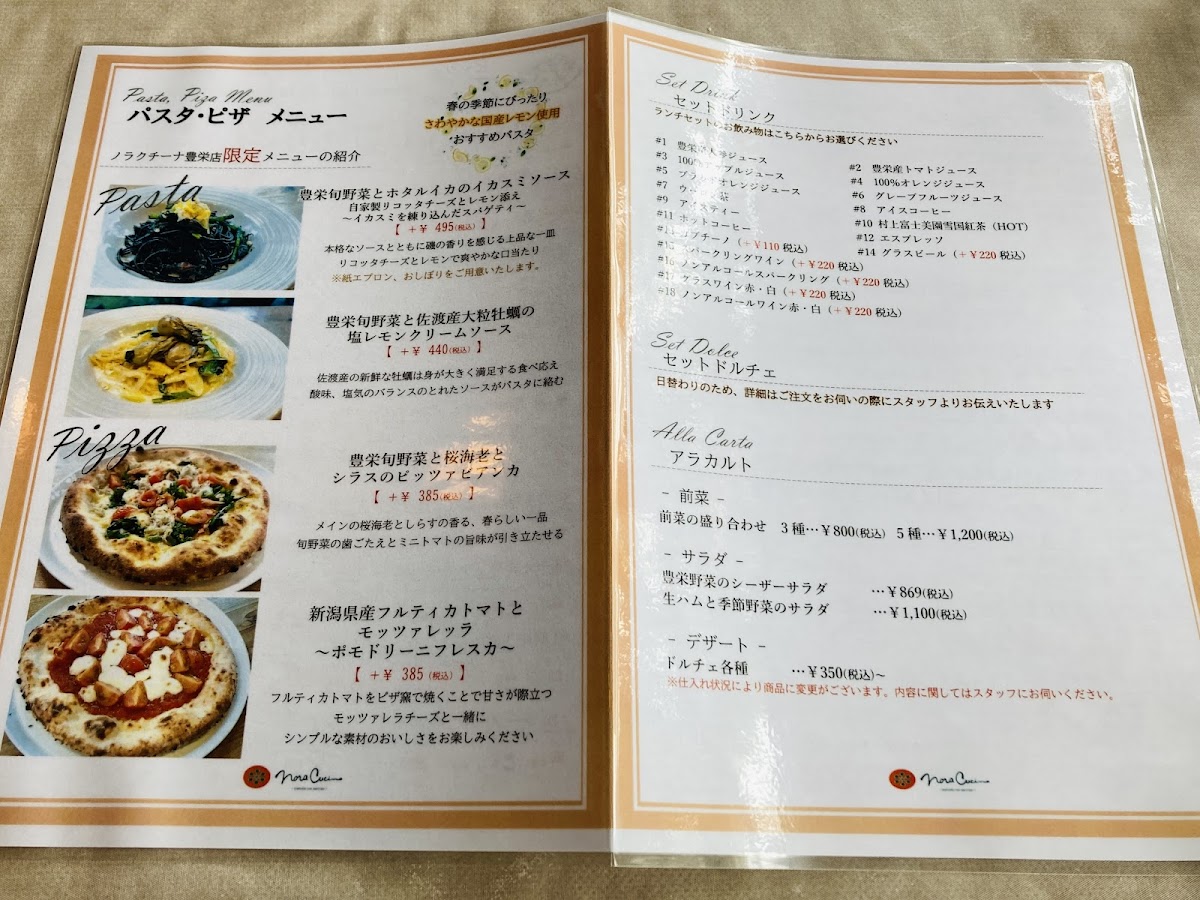 Pasta, Piza Menu
パスタ・ピザ メニュー
春の季節にぴったり
さわやかな国産レモン使用
おすすめパスタ
ノラクチーナ豊栄店限定メニューの紹介
Pasta
豊栄旬野菜とホタルイカのイカスミソース
自家製リコッタチーズとレモン添え
～イカスミを練り込んだスパゲティ～
【 +￥ 495(税込) 】
本格的なソースとともに磯の香りを感じる上品な一皿
リコッタチーズとレモンで爽やかな口当たり
※紙エプロン、おしぼりをご用意いたします。
豊栄旬野菜と佐渡産大粒牡蠣の
塩レモンクリームソース
【 +￥ 440(税込) 】
佐渡産の新鮮な牡蠣は身が大きく満足する食べ応え
酸味、塩気のバランスのとれたソースがパスタに絡む
Pizza
豊栄旬野菜と桜海老と
シラスのピッツァビアンカ
【 +￥ 385(税込) 】
メインの桜海老としらすの香る、春らしい一品
旬野菜の歯ごたえとミニトマトの旨味が引き立たせる
新潟県産フルティカトマトと
モッツァレッラ
～ポモドリーニフレスカ～
【 +￥ 385 (税込) 】
フルティカトマトをピザ窯で焼くことで甘さが際立つ
モッツァレラチーズと一緒に
シンプルな素材のおいしさをお楽しみください
Nora Cucina
Set Drink
セットドリンク
ランチセットのお飲み物はこちらからお選びください
#1 豊栄産人参ジュース
#2 豊栄産トマトジュース
#3 100%アップルジュース
#4 100%オレンジジュース
#5 ブラッドオレンジジュース
#6 グレープフルーツジュース
#7 ウーロン茶
#8 アイスコーヒー
#9 アイスティー
#10 村上富士美園雪国紅茶（HOT）
#11 ホットコーヒー
#12 エスプレッソ
カプチーノ（+￥110 税込）
#14 グラスビール（+￥220 税込）
スパークリングワイン（+￥220 税込）
#16 ノンアルコールスパークリング（+￥220 税込）
#17 グラスワイン赤・白（+￥220 税込）
#18 ノンアルコールワイン赤・白（+￥220 税込）
Set Dolce
セットドルチェ
日替わりのため、詳細はご注文をお伺いの際にスタッフよりお伝えいたします
Alla Carta
アラカルト
- 前菜 -
前菜の盛り合わせ 3種…￥800(税込) 5種…￥1,200(税込)
- サラダ -
豊栄野菜のシーザーサラダ …￥869(税込)
生ハムと季節野菜のサラダ …￥1,100(税込)
- デザート -
ドルチェ各種 …￥350(税込)～
※仕入れ状況により商品に変更がございます。内容に関してはスタッフにお伺いください。
Nora Cucina